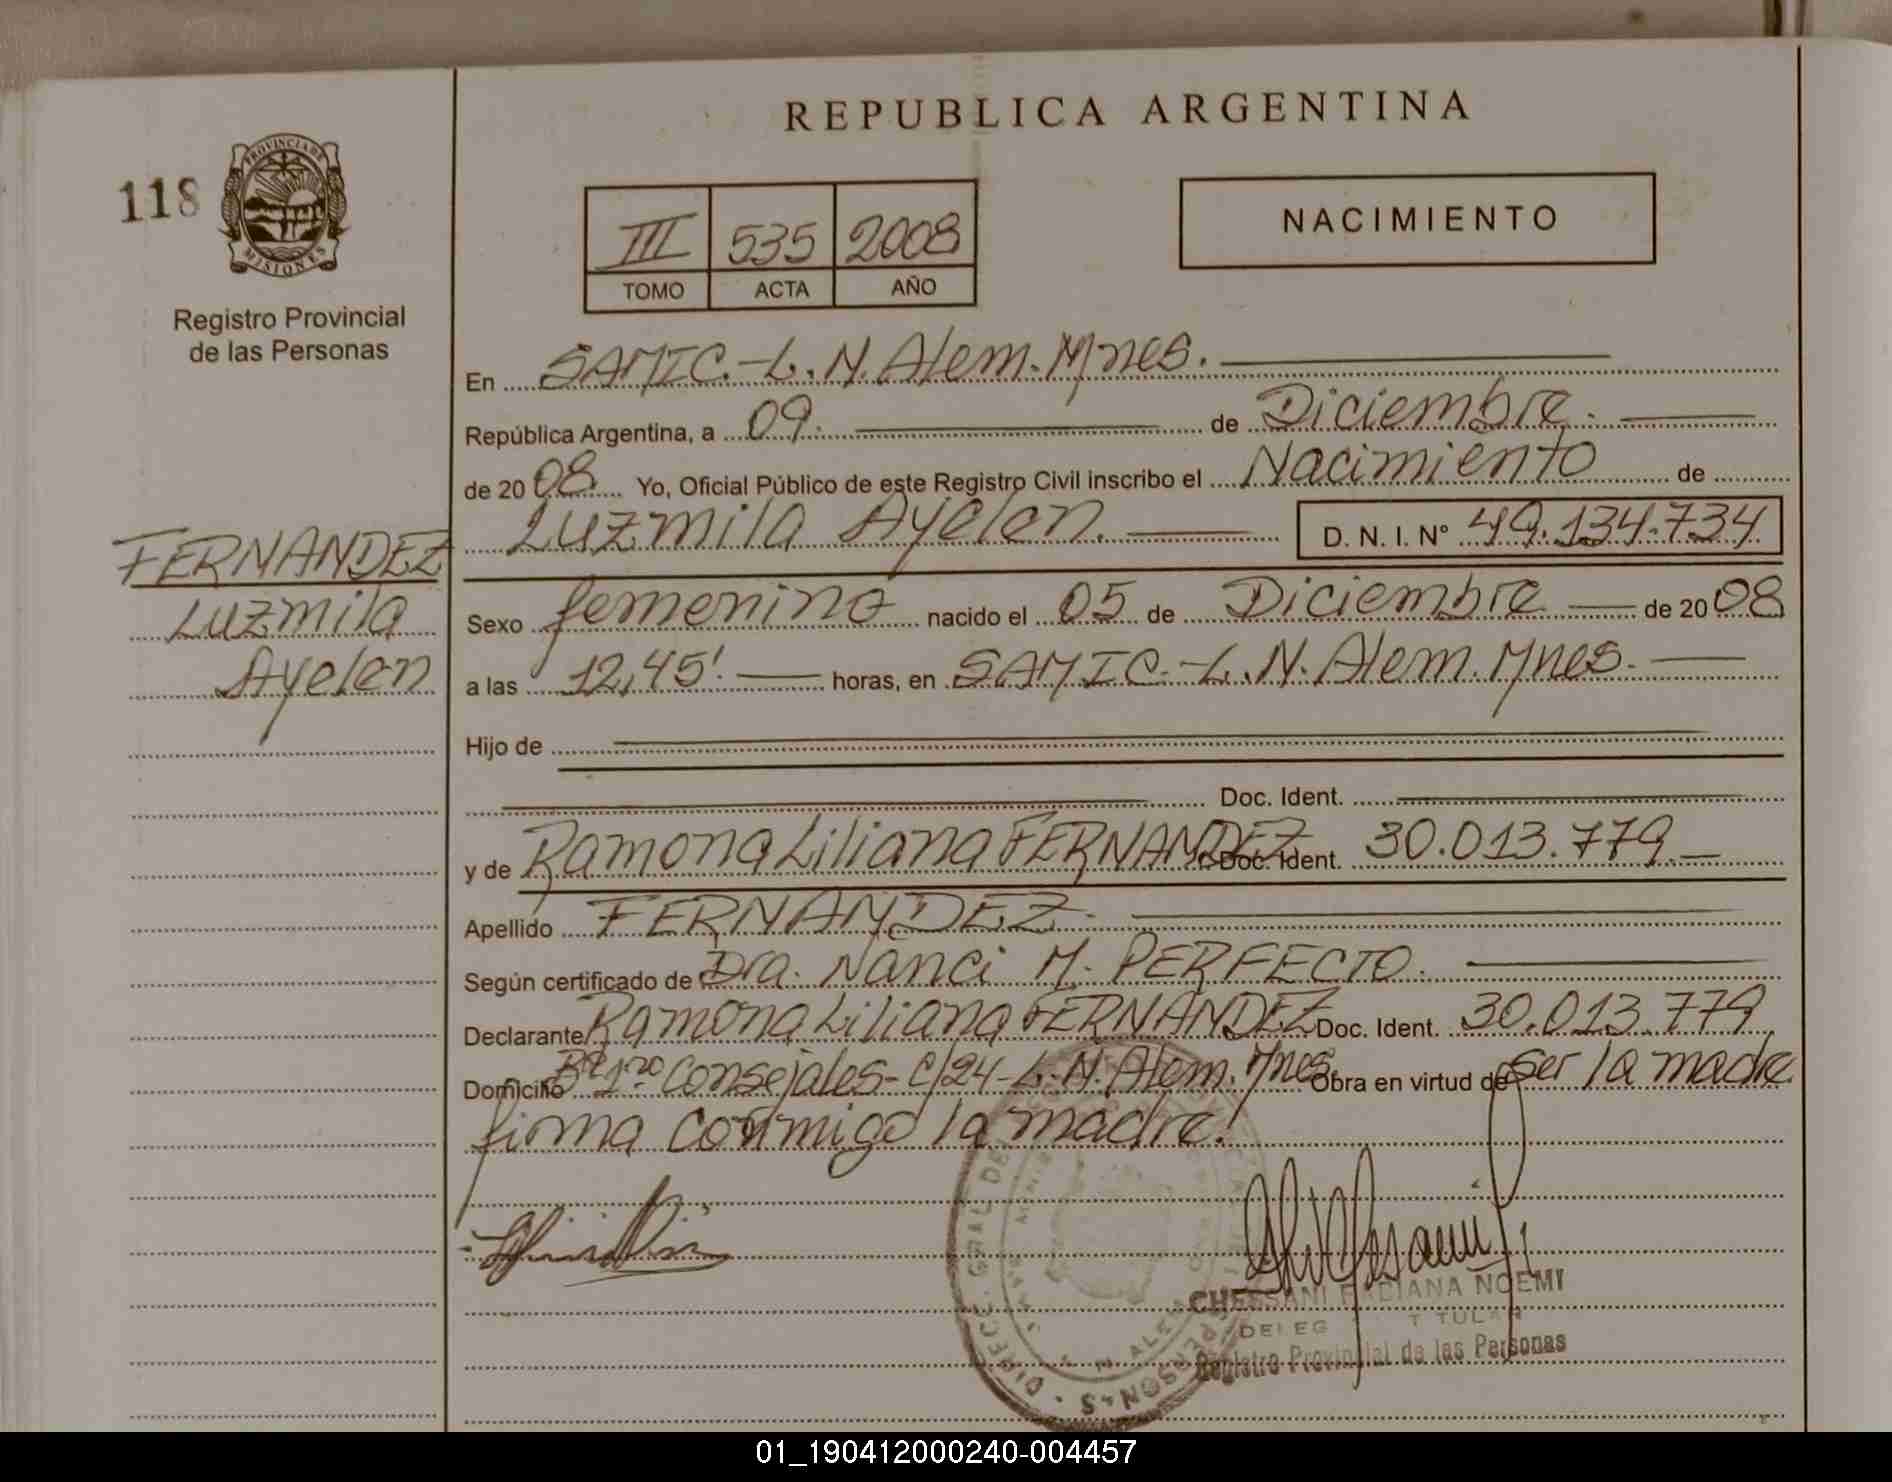 REPUBLICA ARGENTINA
118
PROVINCIA DE
MISIONES
Registro Provincial
de las Personas
III 535 2008
TOMO ACTA AÑO
NACIMIENTO
En SAMIC.-L.N.Alem.Mnes.
República Argentina, a 09. de Diciembre.
de 2008. Yo, Oficial Público de este Registro Civil inscribo el Nacimiento de
Luzmila Ayelen. D. N. I. Nº 49.134.734
FERNANDEZ
Luzmila
Ayelen
Sexo femenino nacido el 05 de Diciembre de 2008
a las 12,45' horas, en SAMIC.-L.N.Alem.Mnes.
Hijo de
Doc. Ident.
y de Ramona Liliana FERNANDEZ Doc. Ident. 30.013.779.
Apellido FERNANDEZ.
Según certificado de Dra. Nanci M. PERFECTO.
Declarante Ramona Liliana FERNANDEZ Doc. Ident. 30.013.779
Domicilio Bº 1ro Consejales-C/24-L.N.Alem.Mnes. Obra en virtud de ser la madre
firma conmigo la madre.
DIRECC. GRAL. DE PERSONAS
NOEMI
TITULAR
Registro Provincial de las Personas
01_190412000240-004457